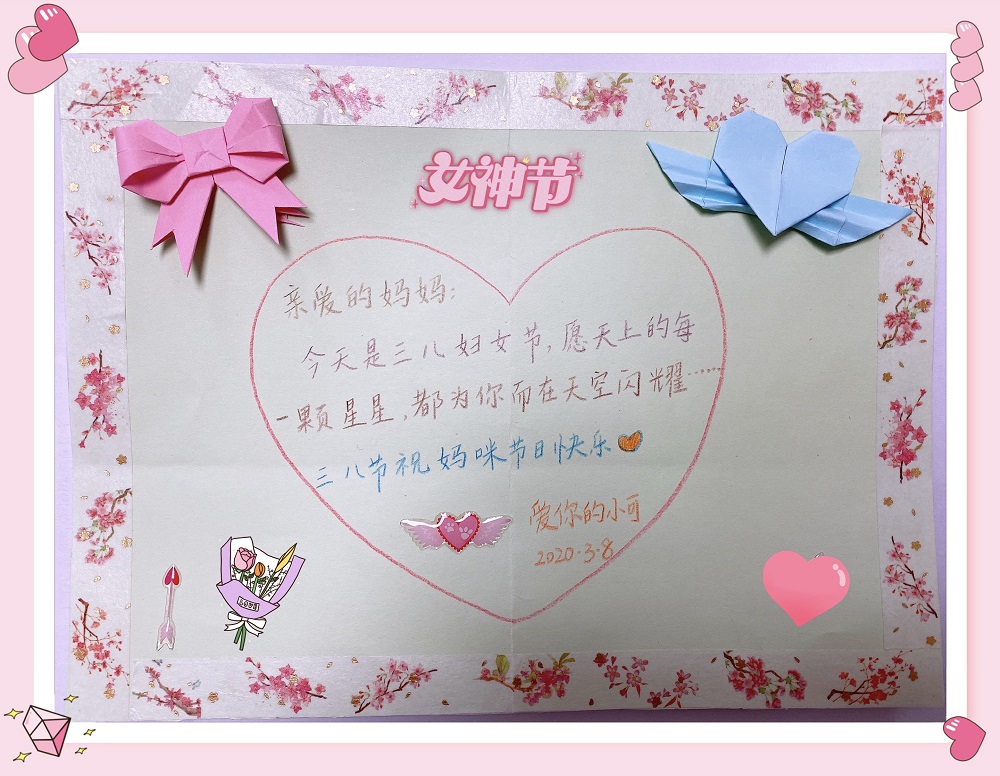 女神节
亲爱的妈妈:
今天是三八妇女节,愿天上的每
一颗星星,都为你而在天空闪耀……
三八节祝妈咪节日快乐
爱你的小可
2020·3·8
LOVE